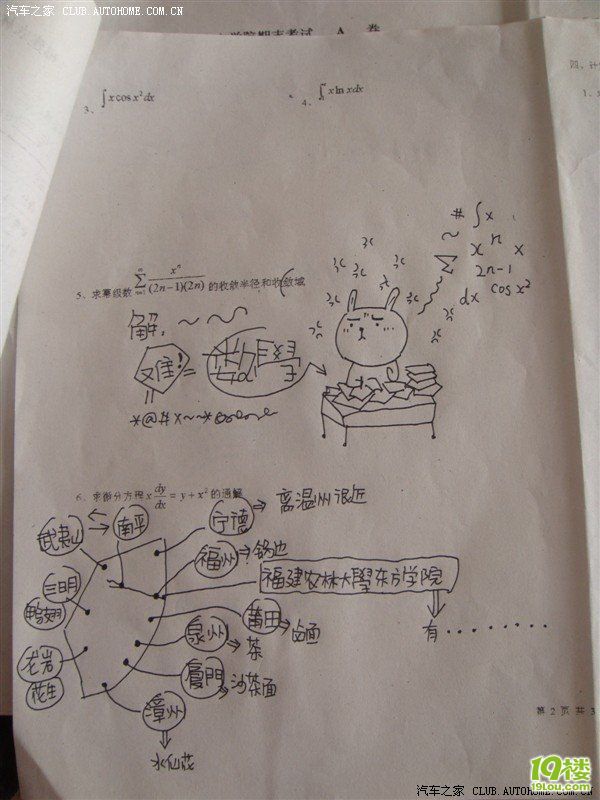 汽车之家 CLUB.AUTOHOME.COM.CN
学院期末考试 A 卷
四、计
3、∫ x cos x² dx
4、 x ln x dx
1、
# ∫ x
~ xⁿ x
2n-1
dx cos x²
5、求幂级数 ∑ xⁿ/((2n-1)(2n)) 的收敛半径和收敛域
解:~ ~ ~
又难! =
*@# x ~~*
6、求微分方程 x dy/dx = y + x² 的通解
武夷山
南平
宁德 ⇒ 离温州很近
福州 ⇒ 锅边
三明
鸭翅
福建农林大學东方学院
有 · · · · · · ·
莆田 ⇒ 卤面
泉州 ⇒ 茶
龙岩
花生
廈門 ⇒ 沙茶面
漳州
水仙花
第 2 页 共 3
19楼
19lou.com
汽车之家 CLUB.AUTOHOME.COM.CN